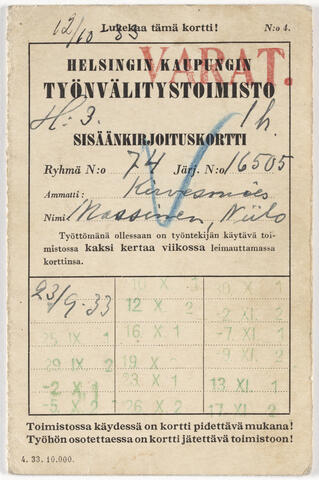 12/10 - 33
Lukekaa tämä kortti!
N:o 4.
VARAT.
HELSINGIN KAUPUNGIN
TYÖNVÄLITYSTOIMISTO
H:3. 1 h.
SISÄÄNKIRJOITUSKORTTI
Ryhmä N:o 74 Järj. N:o 16505
Ammatti: Kirvesmies
Nimi: Massinen, Niilo
Työttömänä ollessaan on työntekijän käytävä toi-
mistossa kaksi kertaa viikossa leimauttamassa
korttinsa.
23/9-33 10 X 2
12 X 2 -2 XI 2
25 IX 1 16 X 1 -7 XI 1
29 IX 2 19 X
-2 X 1 13 XI 1
-5 X 2 26 X 2 17 XI 2
Toimistossa käydessä on kortti pidettävä mukana!
Työhön osotettaessa on kortti jätettävä toimistoon!
4. 33. 10.000.